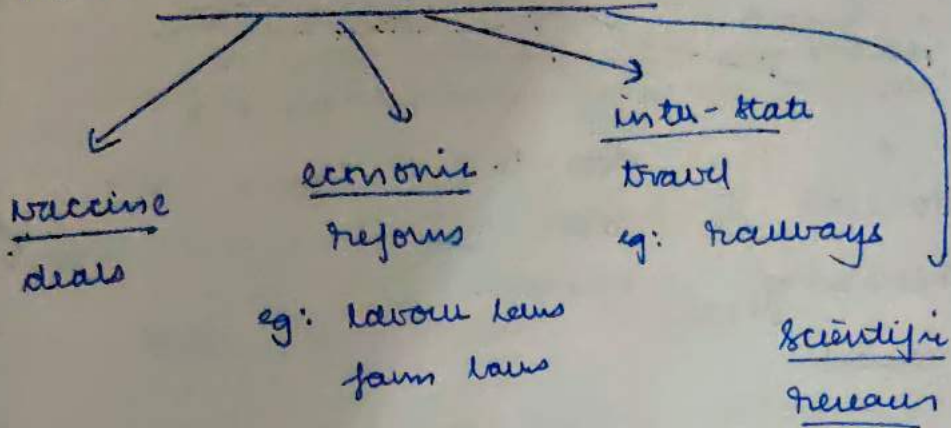 vaccine
deals
economic
reforms
eg: labour laws
farm laws
inter-state
travel
eg: railways
scientific